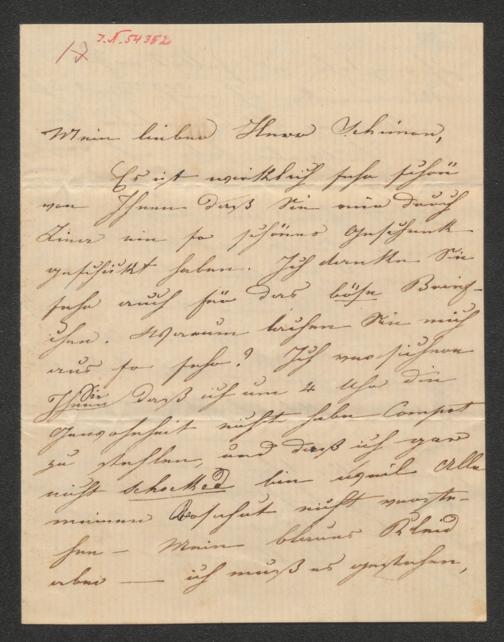 12
I.N. 54382
Mein lieber Herr Schimon,
Es ist wirklich sehr schön
von Ihnen daß Sie mir durch
Lina ein so schönes Geschenk
geschickt haben. Ich danke Sie
sehr auch für das böse Brief-
chen. Warum lachen Sie mich
aus so sehr? Ich versichere
Ihnen Sie daß ich um 4 Uhr die
Gewohnheit nicht habe Compot
zu stehlen, und daß ich gar
nicht shocked bin weil Alle
meinen nicht verste-
hen – Mein blaues Kleid
aber — ich muß es gestehen,